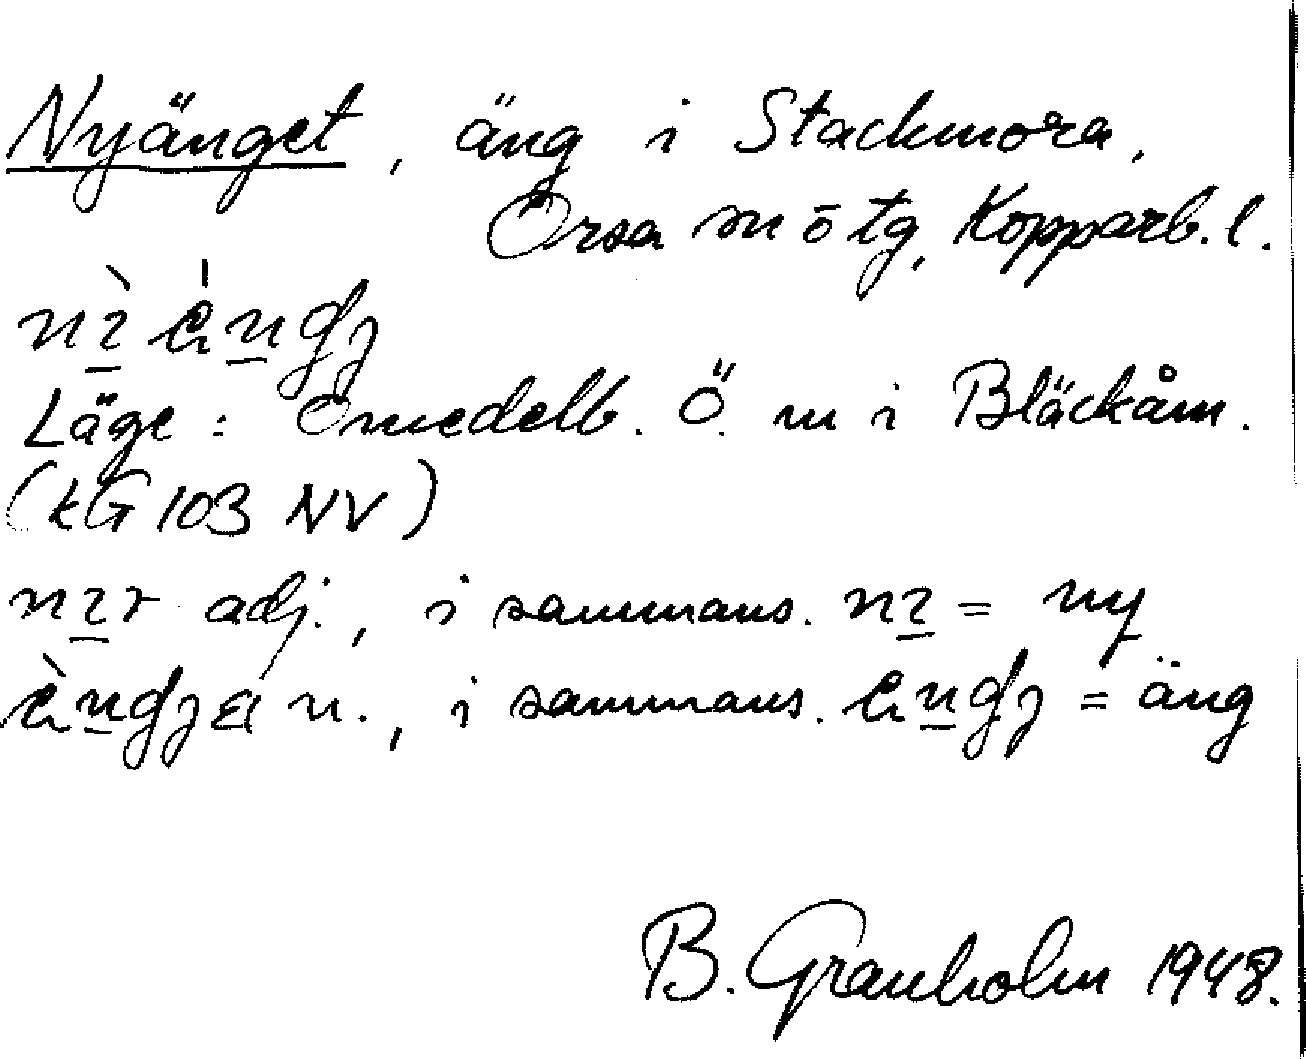 Nyänget, äng i Stackmora,
Orsa sn ö tg, Kopparb. l.
Läge: Omedelb. Ö. m i Bläckåm.
(kG 103 NV)
adj., i sammans. = ny
n., i sammans. = äng
B. Granholm 1948.